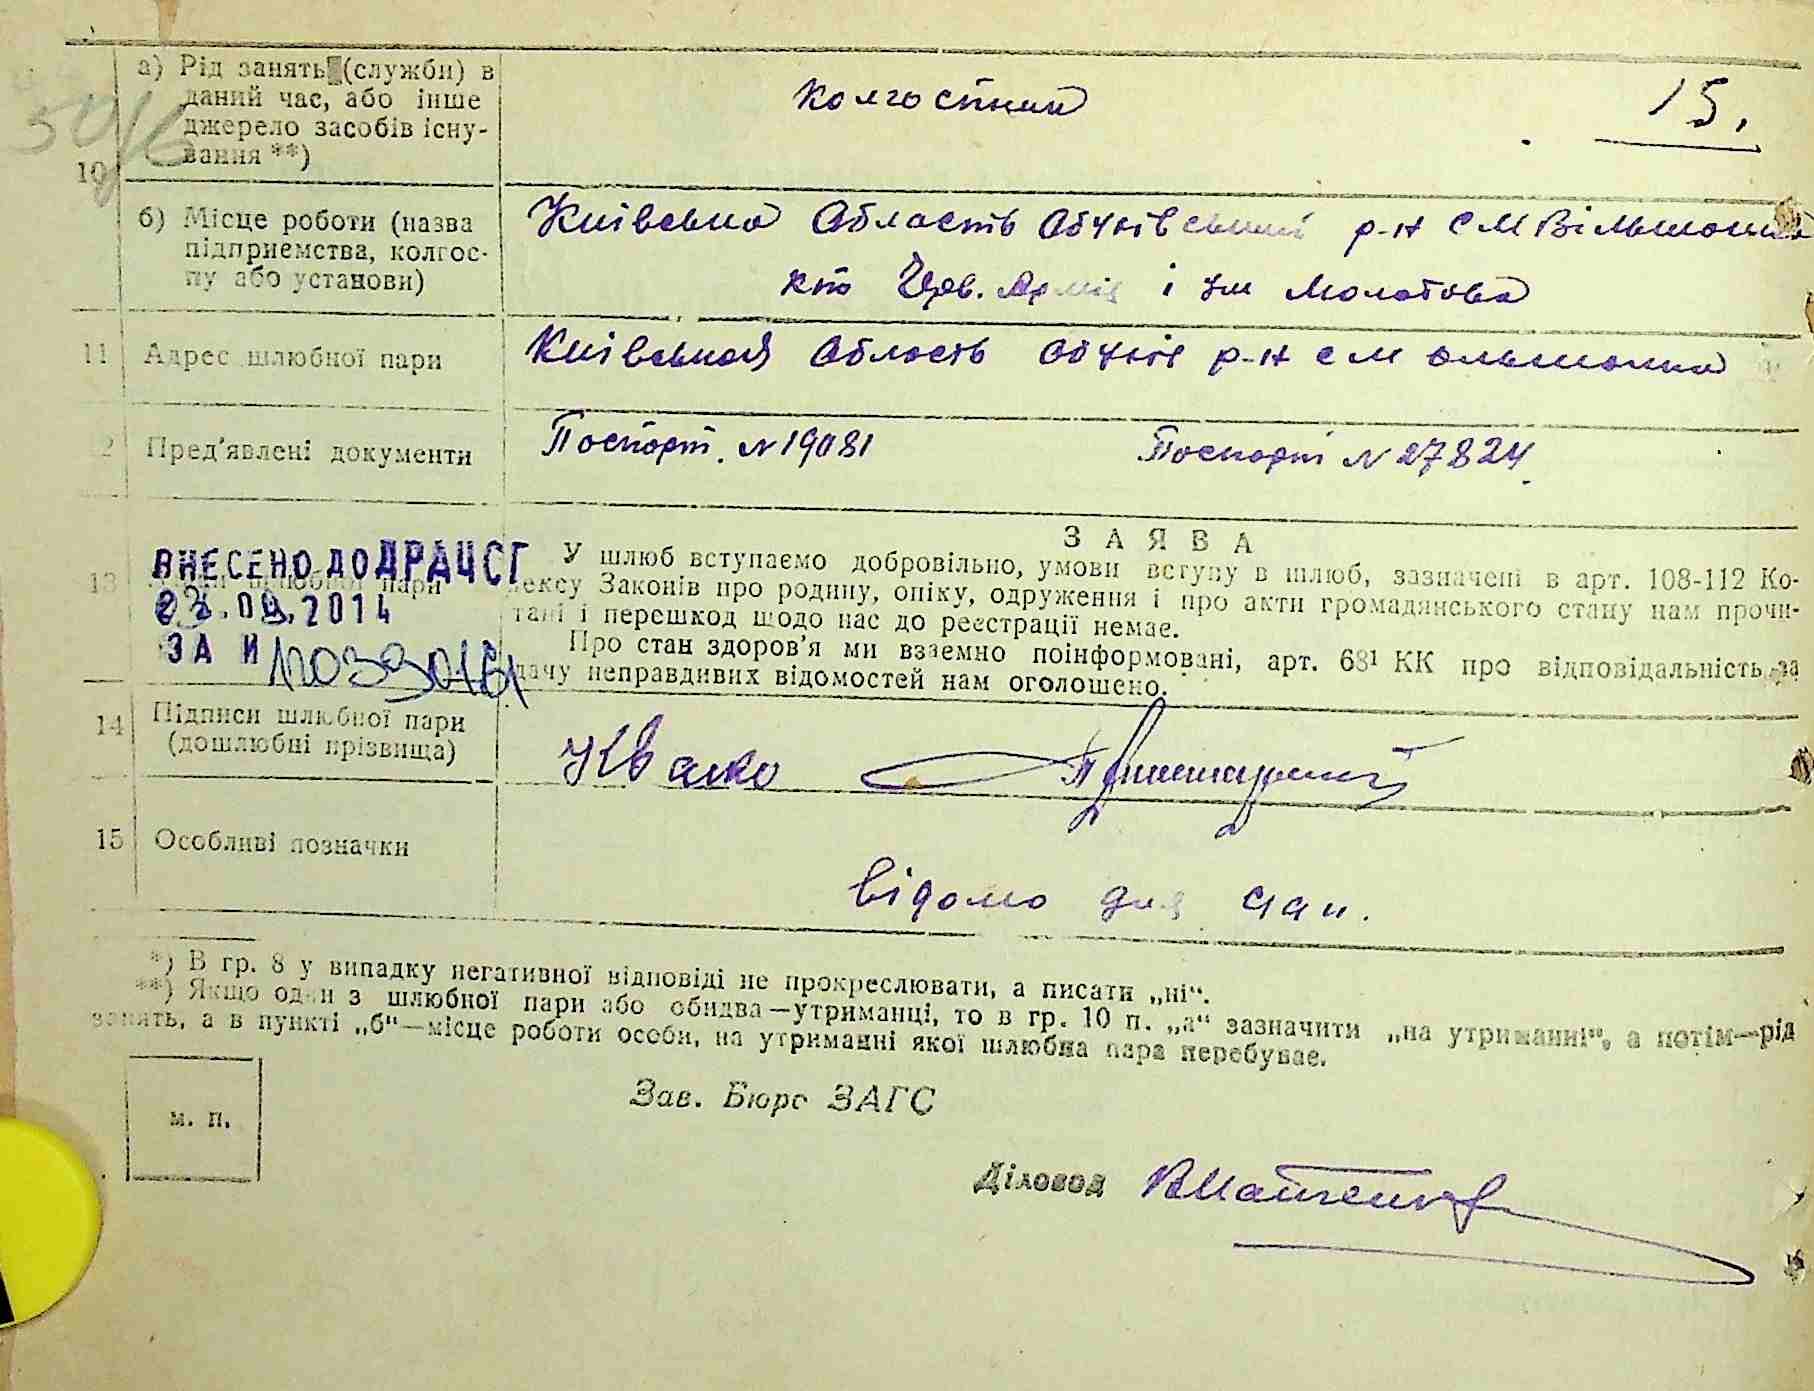 а) Рід занять (служби) в
даний час, або інше
джерело засобів існу-
вання **)
10
15.
б) Місце роботи (назва
підприємства, колгос-
пу або установи)
Київська Область Обухівський р-н см Вільшанка
кт Черв. Армія і ім Молотова
11 Адрес шлюбної пари
Київськая Область Обухів р-н см Ольшанка
2 Пред'явлені документи
Паспорт. N 19081 Паспорт N 27824.
ЗАЯВА
13
ВНЕСЕНО ДО ДРАЦСГ
2014
ЗА И
У шлюб вступаємо добровільно, умови вступу в шлюб, зазначені в арт. 108-112 Ко-
дексу Законів про родину, опіку, одруження і про акти громадянського стану нам прочи-
тані і перешкод щодо нас до реєстрації немає.
Про стан здоров'я ми взаємно поінформовані, арт. 68¹ КК про відповідальність за
дачу неправдивих відомостей нам оголошено.
14 Підписи шлюбної пари
(дошлюбні прізвища)
Квако
15 Особливі позначки
відомо для
*) В гр. 8 у випадку негативної відповіді не прокреслювати, а писати „ні“.
**) Якщо один з шлюбної пари або обидва—утриманці, то в гр. 10 п. „а“ зазначити „на утриманні“, а потім—рід
занять, а в пункті „б“—місце роботи особи, на утриманні якої шлюбна пара перебуває.
м. п.
Зав. Бюро ЗАГС
Діловод